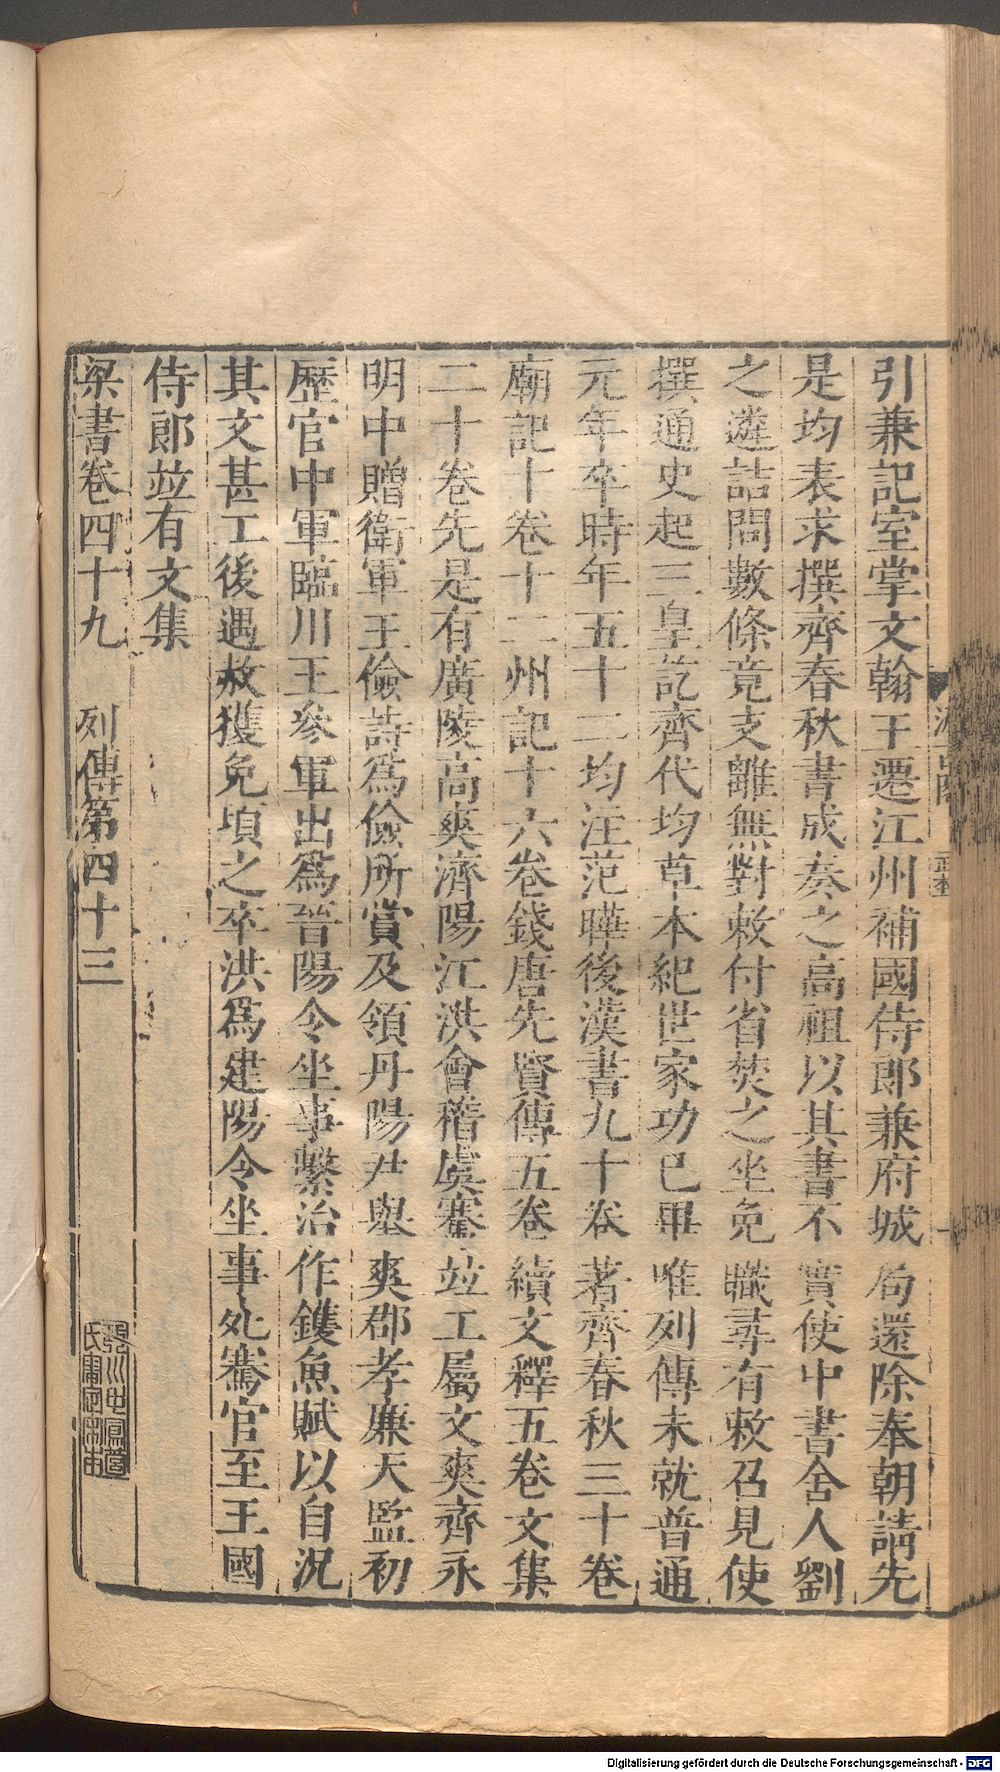 引兼記室掌文翰王遷江州補國侍郎兼府城局還除奉朝請先
是均表求撰齊春秋書成奏之高祖以其書不實使中書舍人劉
之遴詰問數條竟支離無對敕付省焚之坐免職尋有敕召見使
撰通史起三皇訖齊代均草本紀世家功已畢唯列傳未就普通
元年卒時年五十二均注范曄後漢書九十卷著齊春秋三十卷
廟記十卷十二州記十六卷錢唐先賢傳五卷續文釋五卷文集
二十卷先是有廣陵高爽濟陽江洪會稽虞騫竝工屬文爽齊永
明中贈衛軍王儉詩爲儉所賞及領丹陽尹舉爽郡孝廉天監初
歷官中軍臨川王參軍出爲晉陽令坐事繫治作鑊魚賦以自況
其文甚工後遇赦獲免頃之卒洪爲建陽令坐事死騫官至王國
侍郎竝有文集
梁書卷四十九 列傳第四十三
Digitalisierung gefördert durch die Deutsche Forschungsgemeinschaft - DFG